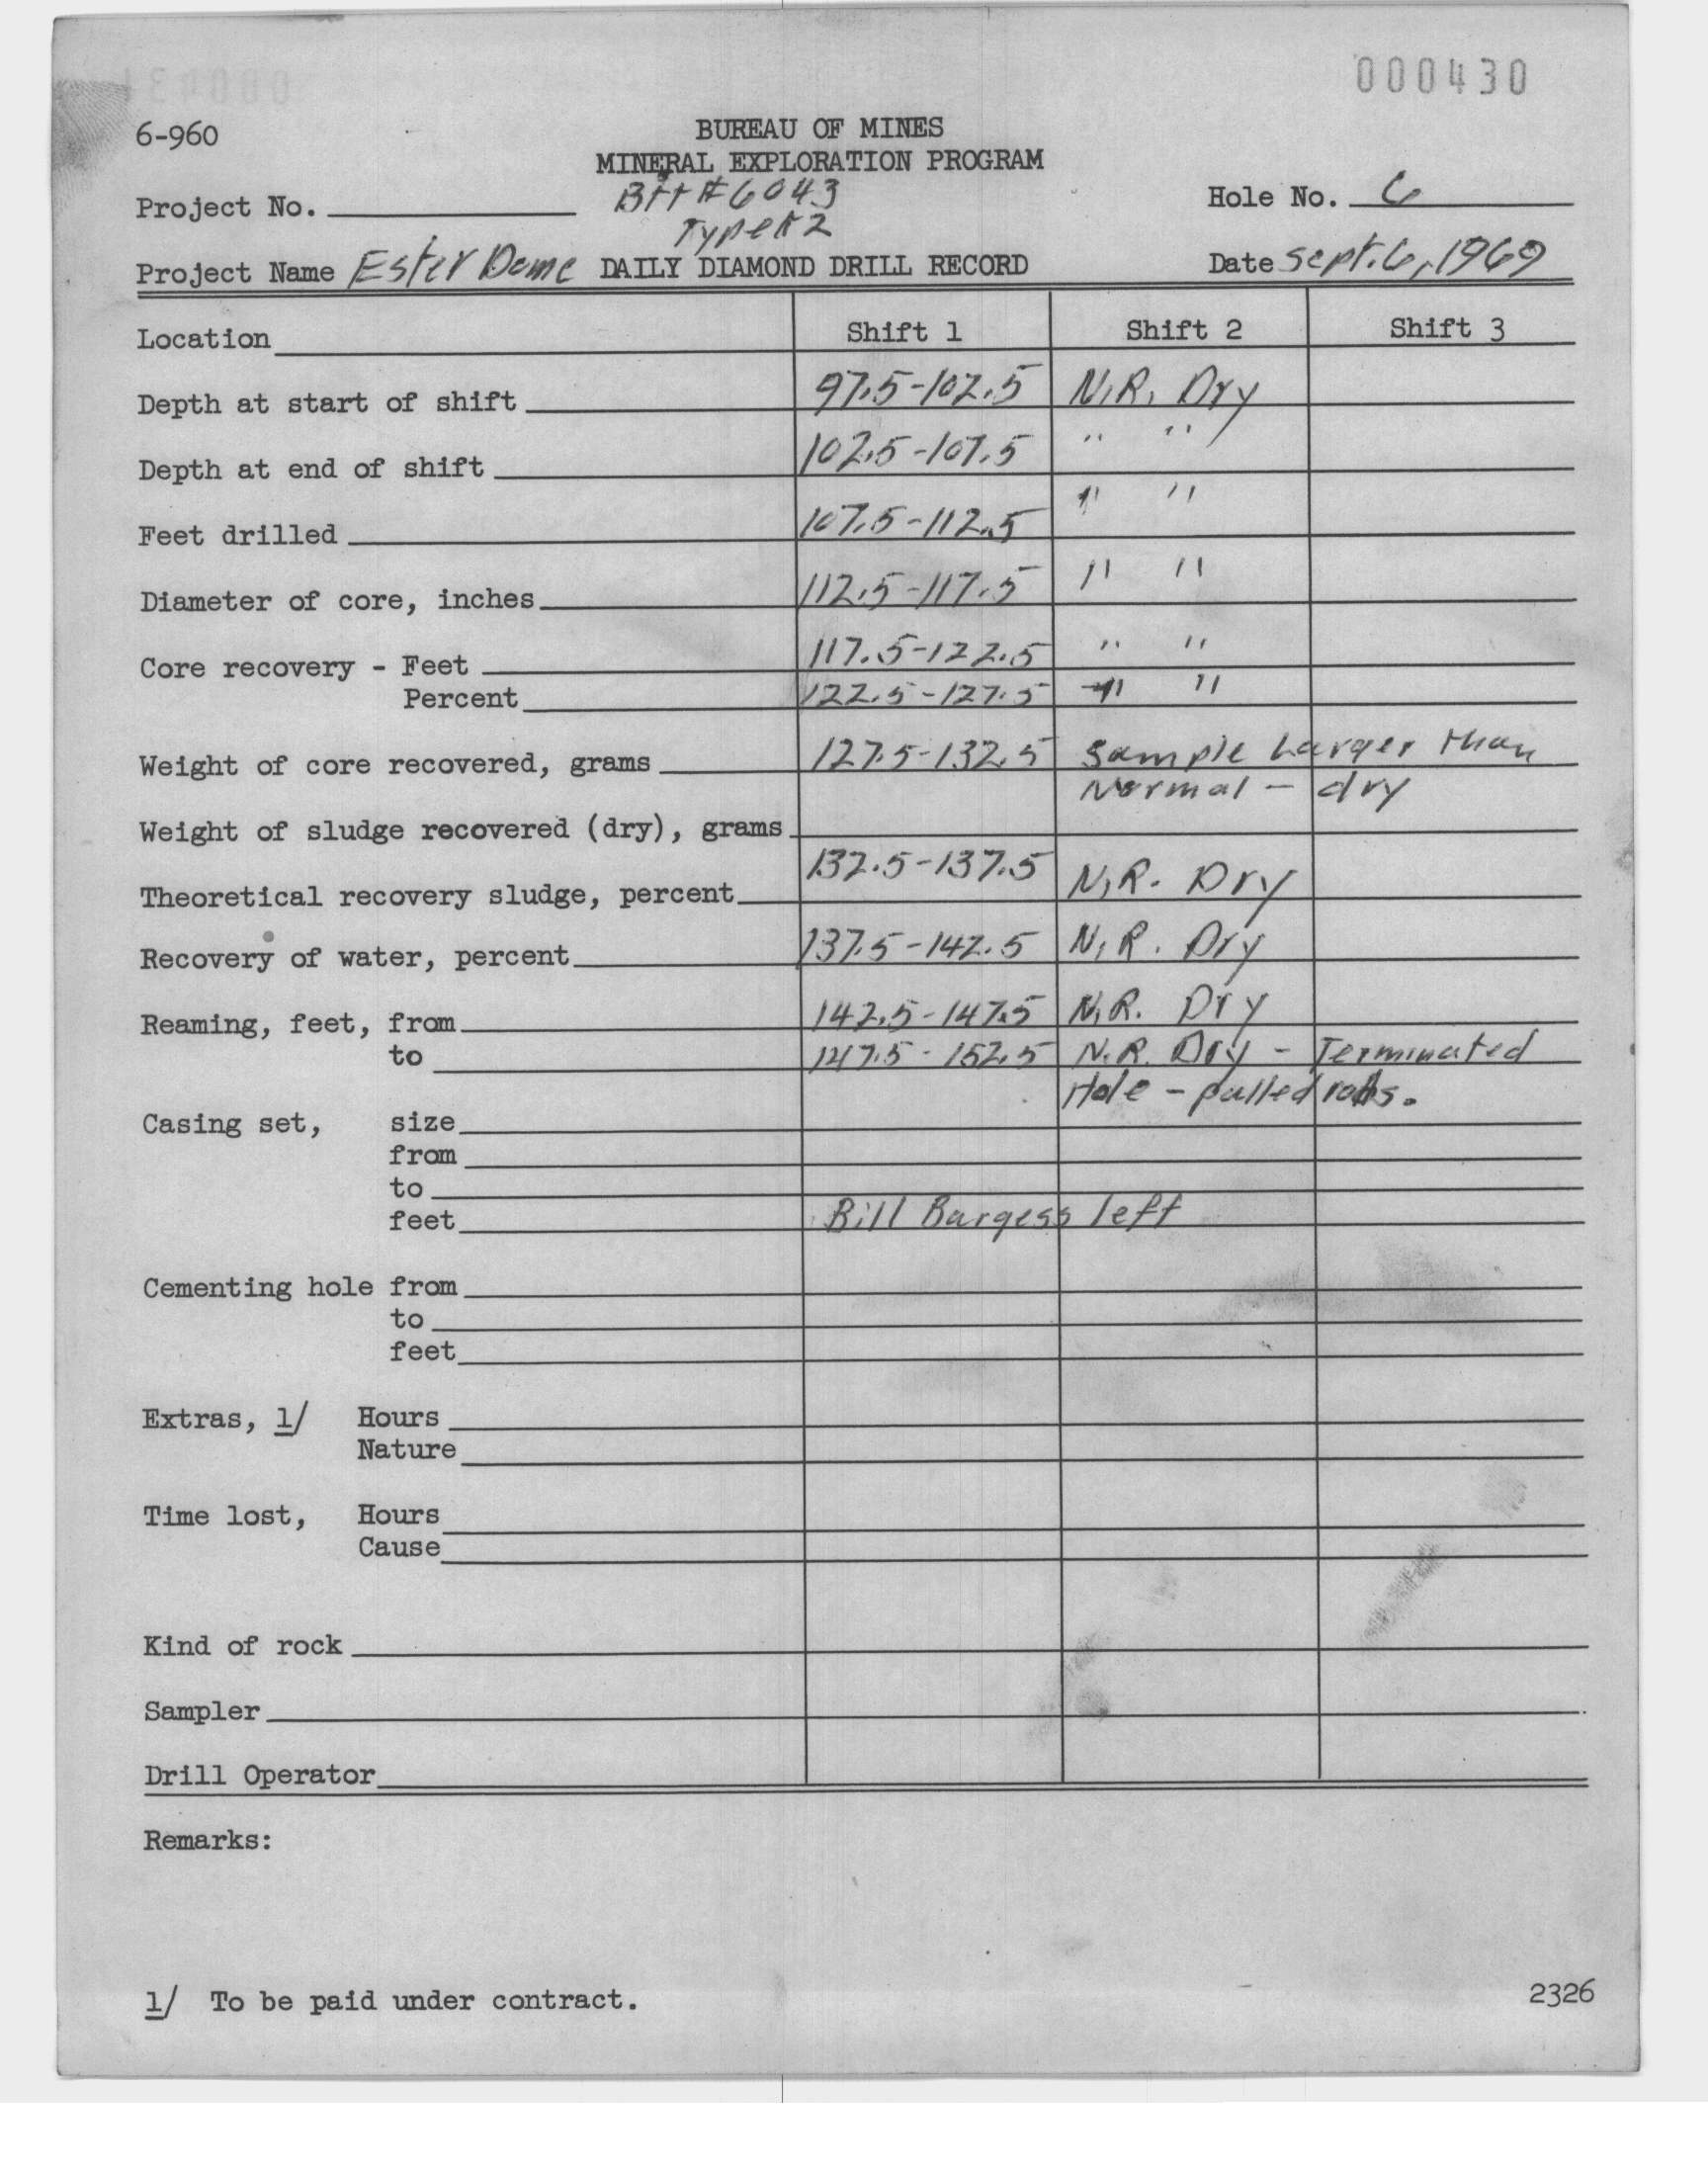 000430
6-960
BUREAU OF MINES
MINERAL EXPLORATION PROGRAM
Project No. Bit #6043 Hole No. 6
Type K2
Project Name Ester Dome DAILY DIAMOND DRILL RECORD Date Sept. 6, 1969
Location Shift 1 Shift 2 Shift 3
Depth at start of shift 97.5-102.5 N.R. Dry
Depth at end of shift 102.5-107.5 " "
Feet drilled 107.5-112.5 " "
Diameter of core, inches 112.5-117.5 " "
Core recovery - Feet 117.5-122.5 " "
Percent 122.5-127.5 " "
Weight of core recovered, grams 127.5-132.5 Sample Larger than
Normal - dry
Weight of sludge recovered (dry), grams
Theoretical recovery sludge, percent 132.5-137.5 N.R. Dry
Recovery of water, percent 137.5-142.5 N.R. Dry
Reaming, feet, from 142.5-147.5 N.R. Dry
to 147.5-152.5 N.R. Dry - Terminated
Hole - pulled rods.
Casing set, size
from
to
feet Bill Burgess left
Cementing hole from
to
feet
Extras, 1/ Hours
Nature
Time lost, Hours
Cause
Kind of rock
Sampler
Drill Operator
Remarks:
1/ To be paid under contract. 2326